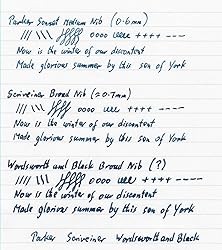 Parker Sonnet Medium Nib (0.6mm)
//// \\\ ffff oooo uell ++++ ----
Now is the winter of our discontent
Made glorious summer by this son of York
Scriveiner Broad Nib (≈0.7mm)
//// \\\ ffff oooo eeee ++++ ----
Now is the winter of our discontent
Made glorious summer by this son of York
Wordsworth and Black Broad Nib (?)
//// \\\ ffff oooo eeee ++++ ----
Now is the winter of our discontent
Made glorious summer by this son of York
Parker Scriveiner Wordsworth and Black